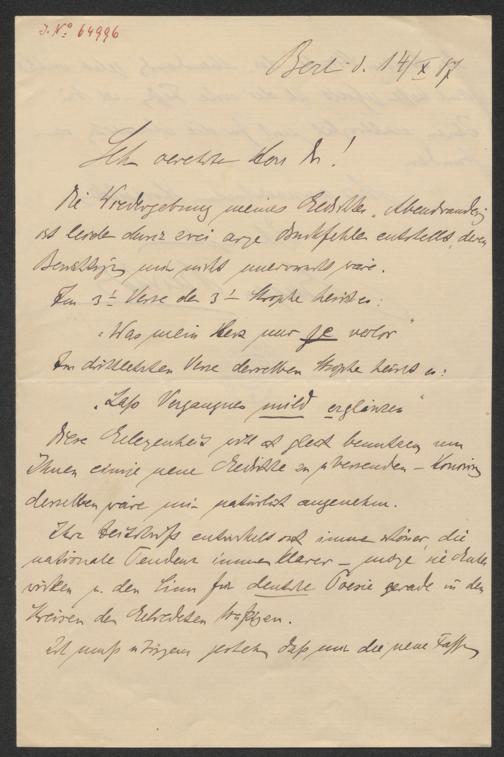 J. No 64996
Berl. d. 14/X 87
Sehr verehrter Herr Dr!
Die Wiedergebung meines Gedichtes „Abendwanderung
ist leider durch zwei arge Druckfehler entstellt, deren
Berichtigung mir nicht unerwünscht wäre.
Im 3t Verse der 3t Strophe heißt es:
„Was mein Herz nur je verlor"
Im drittletzten Verse derselben Strophe heißt es:
„Laß Vergangnes mild erglänzen"
Diese Gelegenheit will ich gleich benutzen um
Ihnen einige neue Gedichte zu übersenden – Honorirung
derselben wäre mir natürlich angenehm.
Ihre Zeitschrift entwickelt sich immer schöner, die
nationale Tendenz immer klarer – möge sie
wirken u. den Sinn für deutsche Poesie gerade in den
Kreisen der Gebildeten kräftigen.
Ich muß übrigens gestehen daß mir die neue Fassung